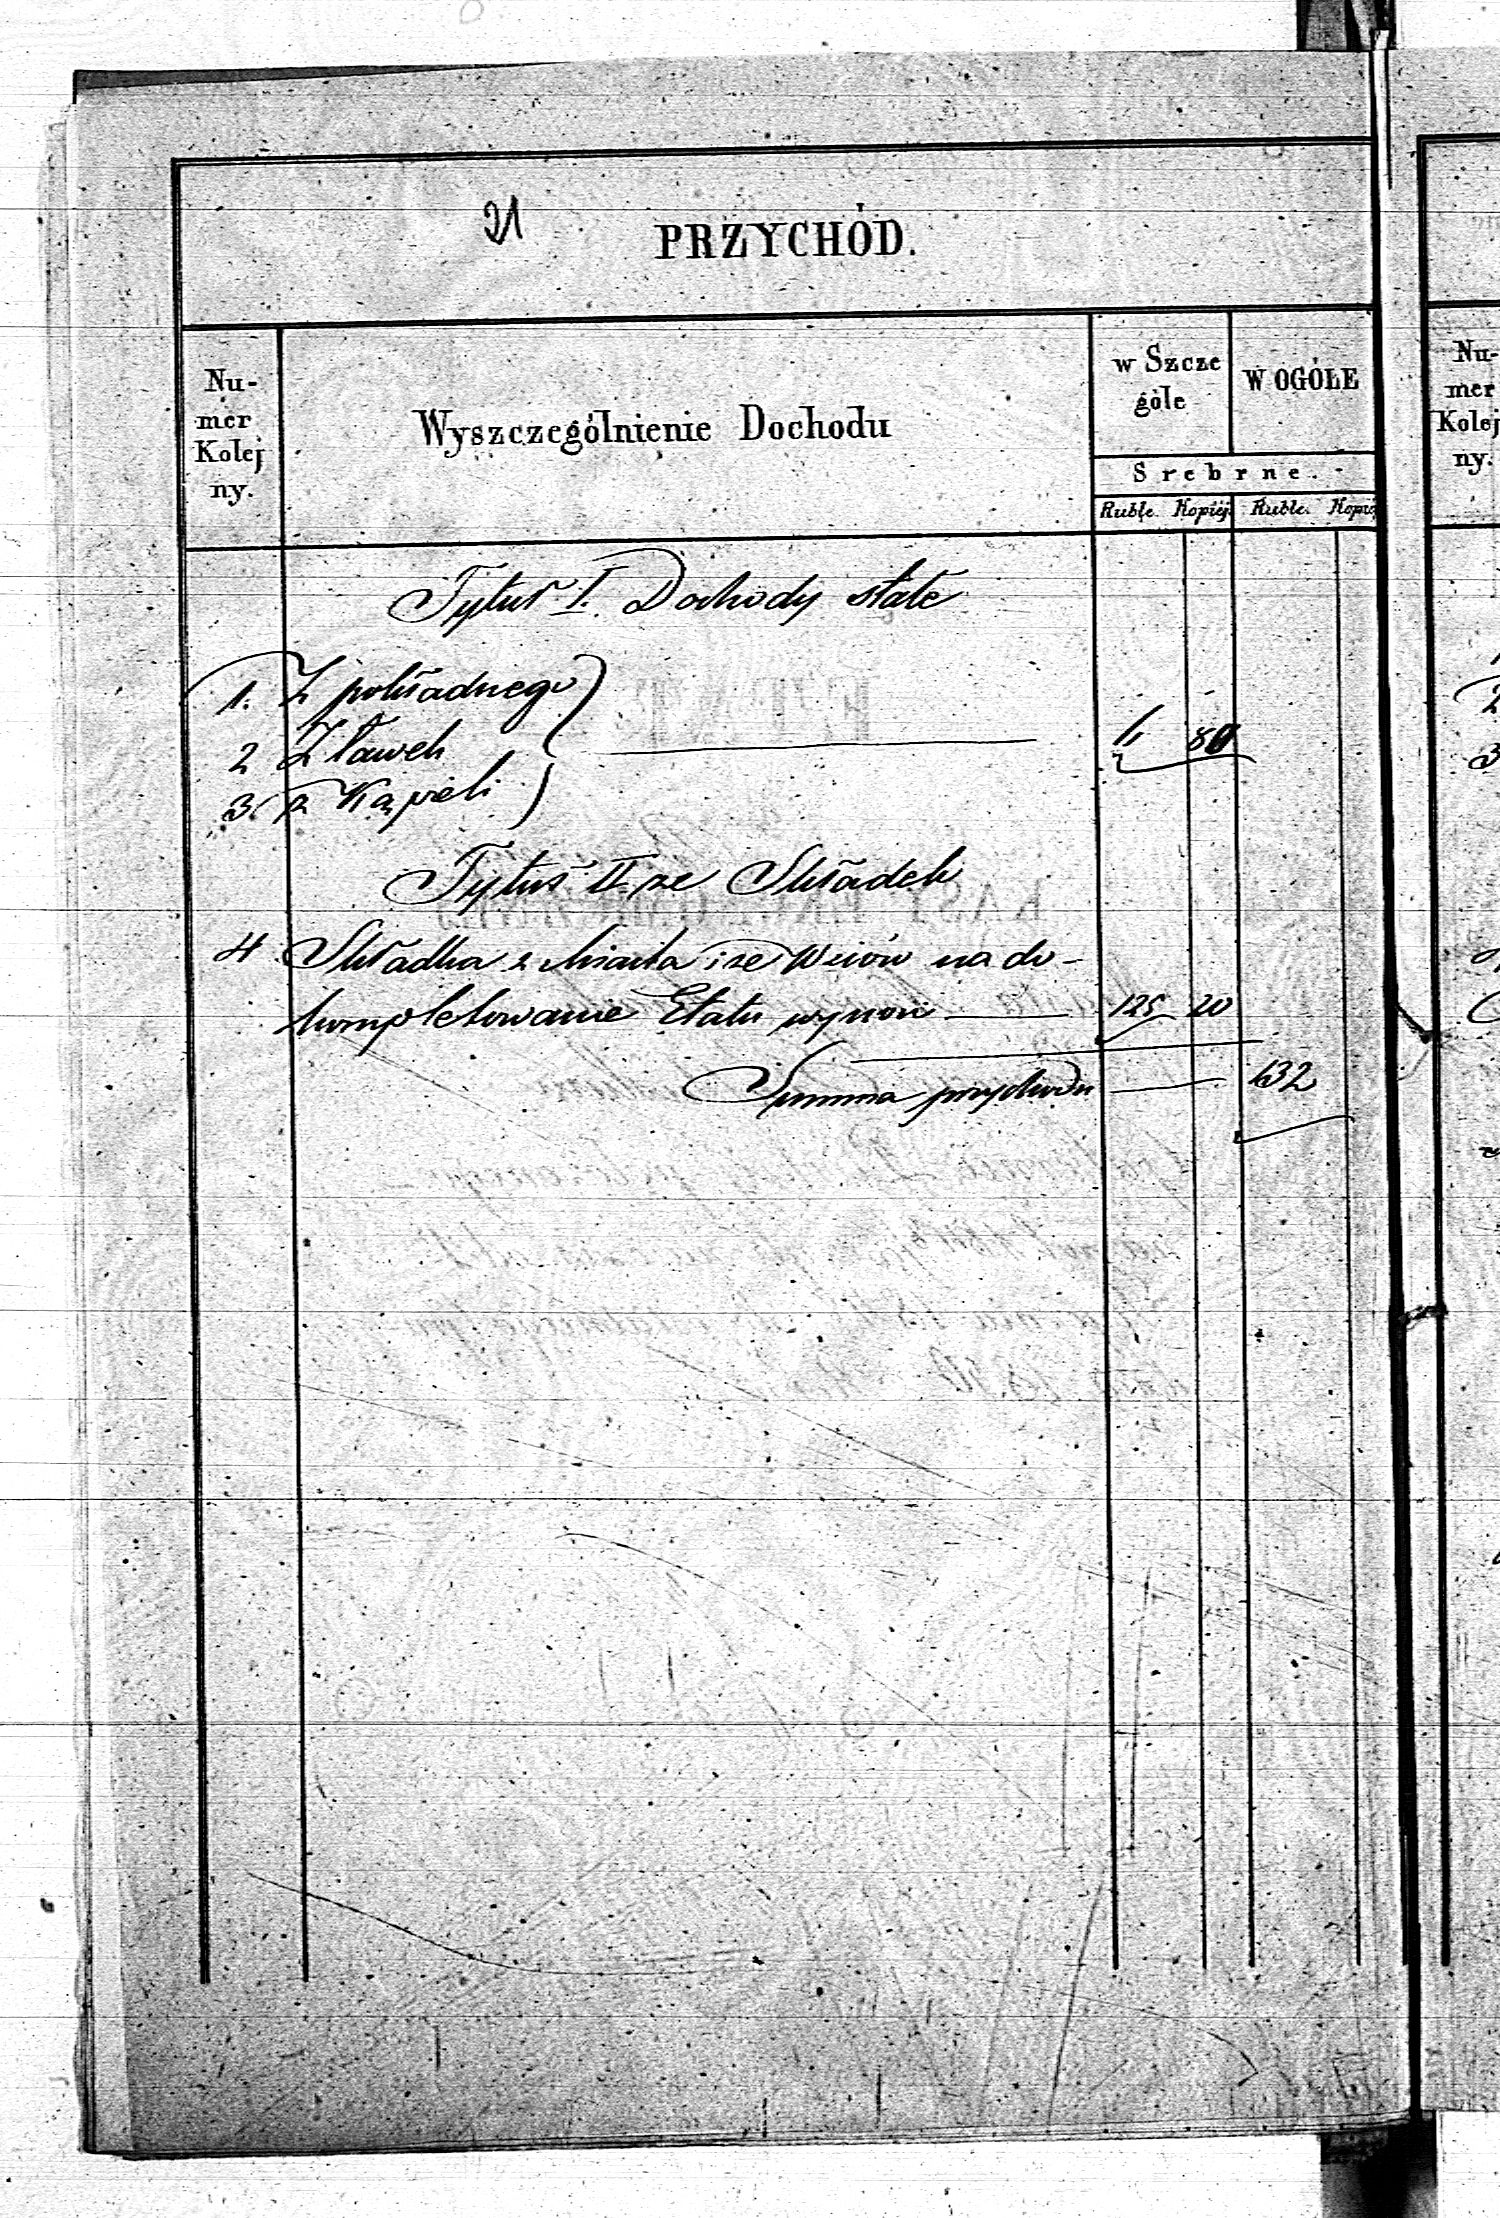 21
PRZYCHÓD.
Numer Kolejny.
Wyszczególnienie Dochodu
w Szczególe
W OGÓLE
Srebrne.
Ruble. Kopiej. Ruble. Kopiej
Tytuł I. Dochody stałe
1. Z pokładnego
2 Z ławek
6 80
3 z Kąpieli
Tytuł II ze Składek
4 Składka z Miasta i ze Wsiów na do-
kompletowanie Etatu wynosi 125 20
Summa przychodu 132
Nu-
mer
Kolej
ny.